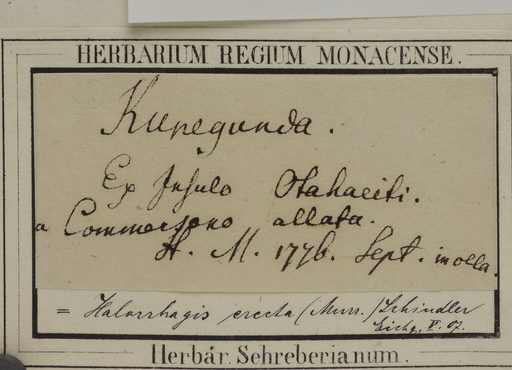 HERBARIUM REGIUM MONACENSE.
Kunegunda.
Ex Insula Otahaeiti.
a Commersono allata.
H. M. 1776. Sept. in olla.
= Halorrhagis erecta (Murr.) Schindler
Eichg. V. 07.
Herbár. Schreberianum.